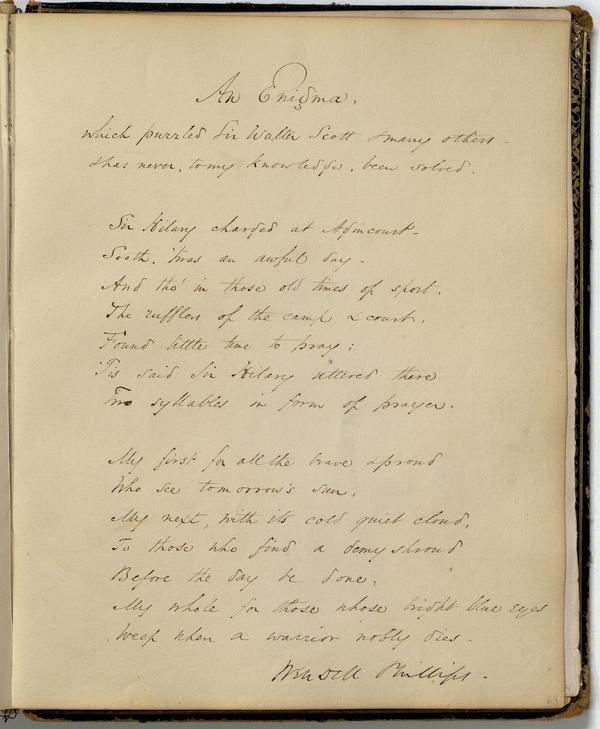 An Enigma,
which puzzled Sir Walter Scott & many others -
& has never, to my knowledge, been solved.
Sir Hilary charged at Agincourt -
Sooth, 'twas an awful day -
And tho' in those old times of sport,
The rufflers of the camp & court,
Found little time to pray:
'Tis said Sir Hilary uttered there
Two syllables in form of prayer.
My first for all the brave & proud
Who see tomorrow's sun,
My next, with its cold quiet cloud,
To those who find a demy shroud
Before the day be done,
My whole for those whose bright blue eyes
Weep when a warrior nobly dies -
Wendell Phillips -
63